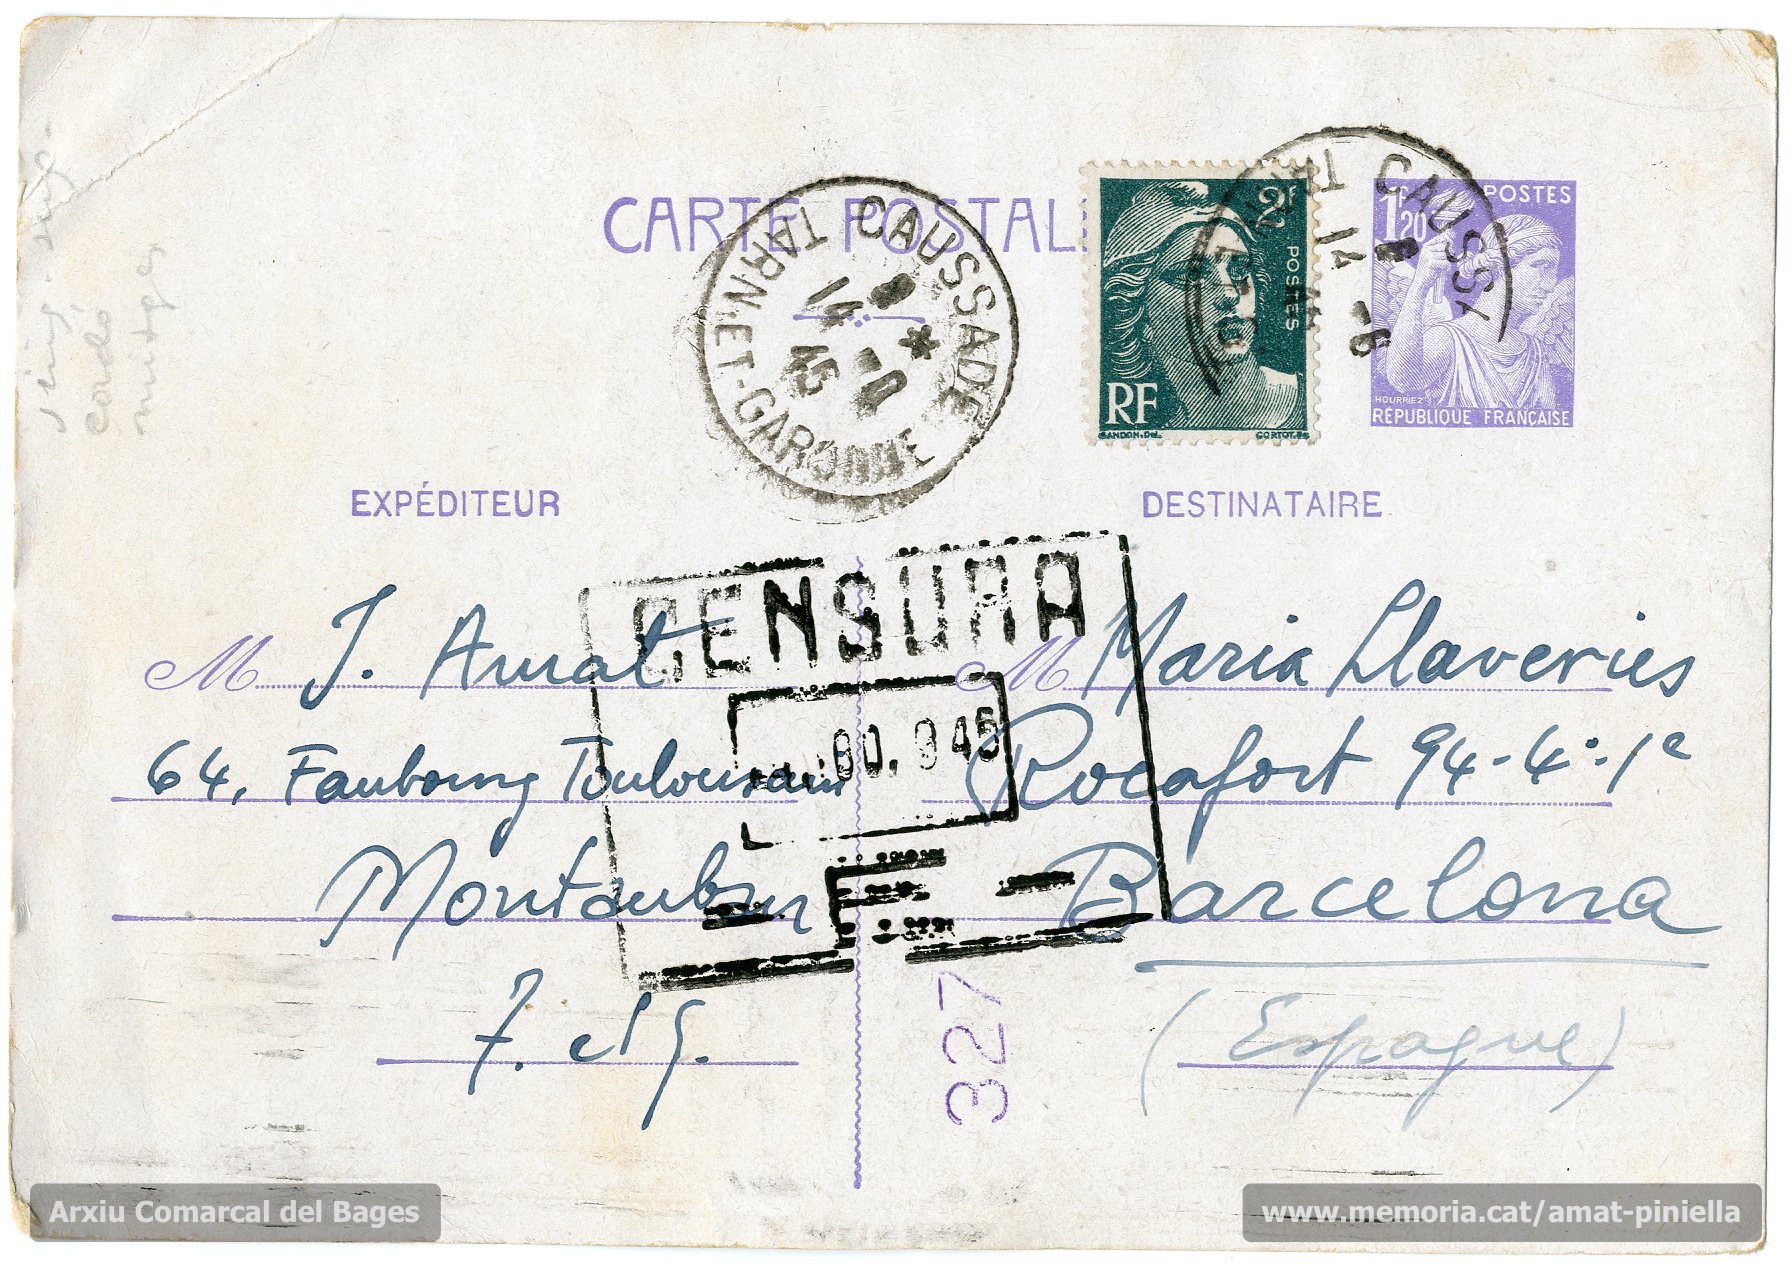 CARTE POSTAL
CAUSSADE
TARN-ET-GARONNE
14
45
2F
POSTES
RF
GANDON.Del.
CORTOT.Sc
CAUSSA
14
1F20
POSTES
HOURRIEZ
RÉPUBLIQUE FRANÇAISE
EXPÉDITEUR
DESTINATAIRE
CENSURA
M J. Amat
64, Faubourg Toulousain
Montauban
T. et G.
M Maria Llaveries
Rocafort 94-4º-1ª
Barcelona
(Espagne)
327
Arxiu Comarcal del Bages
www.memoria.cat/amat-piniella